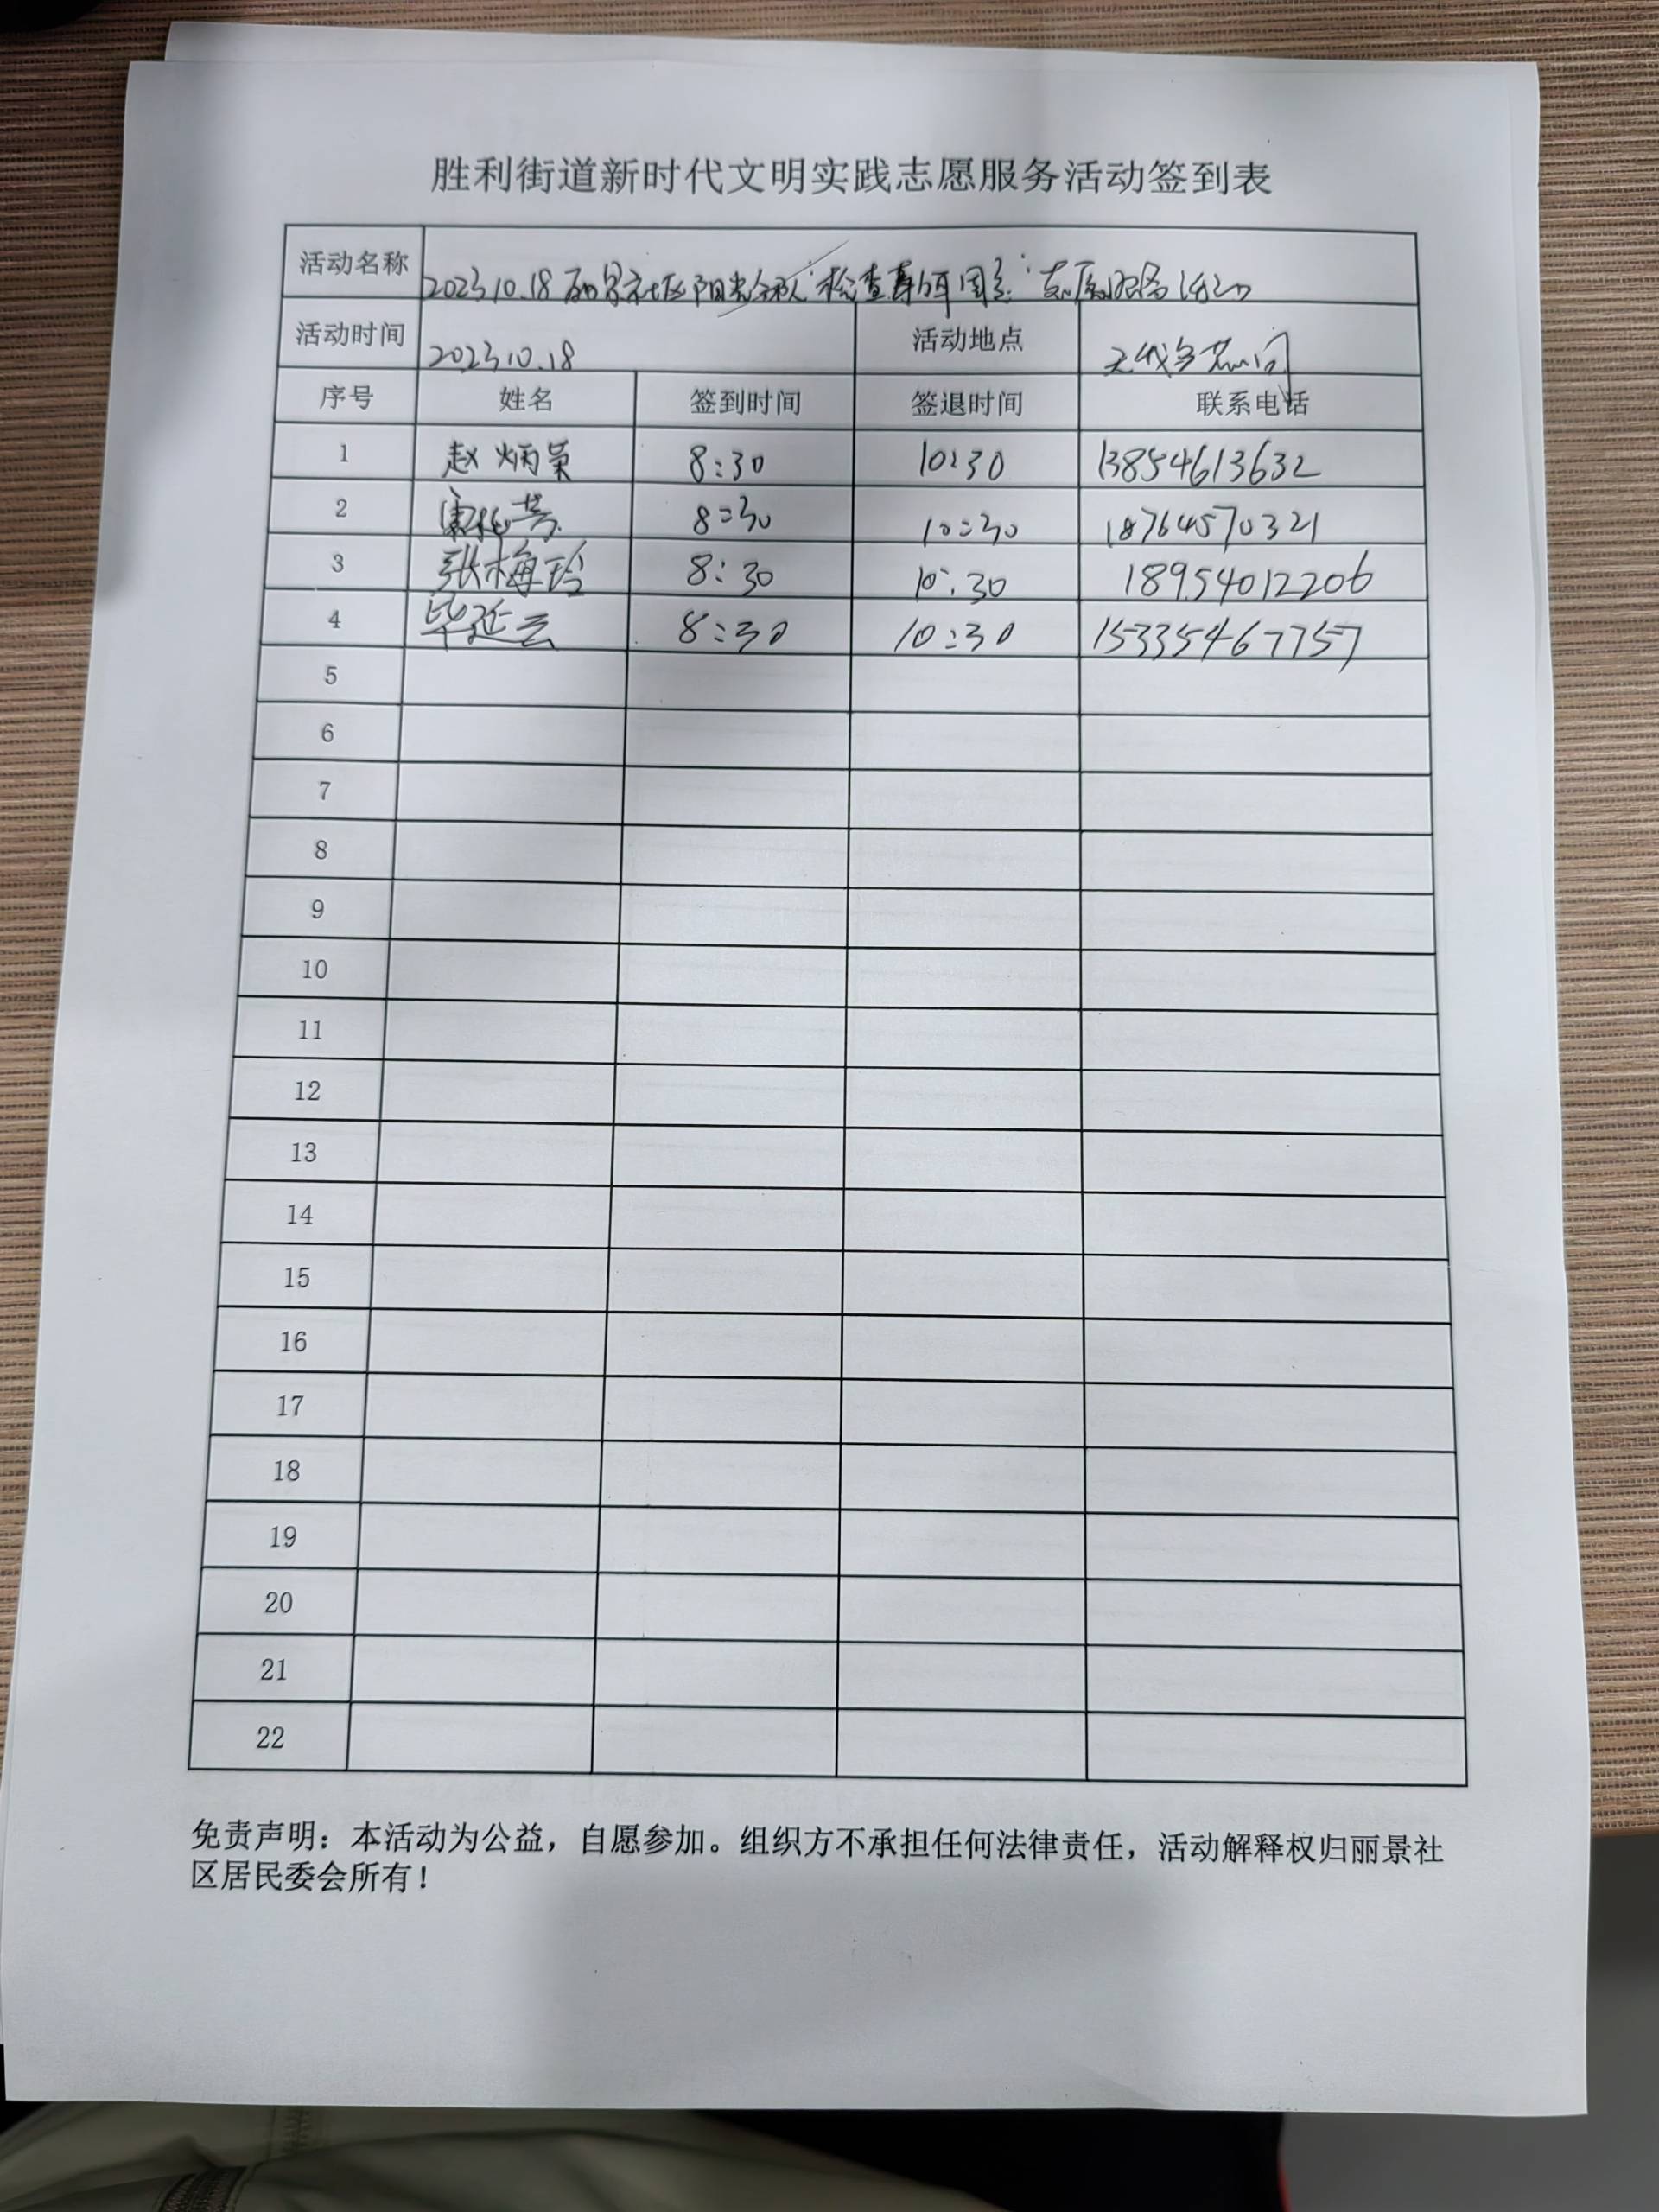 胜利街道新时代文明实践志愿服务活动签到表
活动名称 2023.10.18 丽景社区阳光 "检查 " 志愿服务活动
活动时间 2023.10.18 活动地点
序号 姓名 签到时间 签退时间 联系电话
1 赵炳英 8:30 10:30 13854613632
2 8:30 10:30 18764570321
3 张梅玲 8:30 10:30 18954012206
4 毕延云 8:30 10:30 15335467757
5
6
7
8
9
10
11
12
13
14
15
16
17
18
19
20
21
22
免责声明：本活动为公益，自愿参加。组织方不承担任何法律责任，活动解释权归丽景社
区居民委会所有！